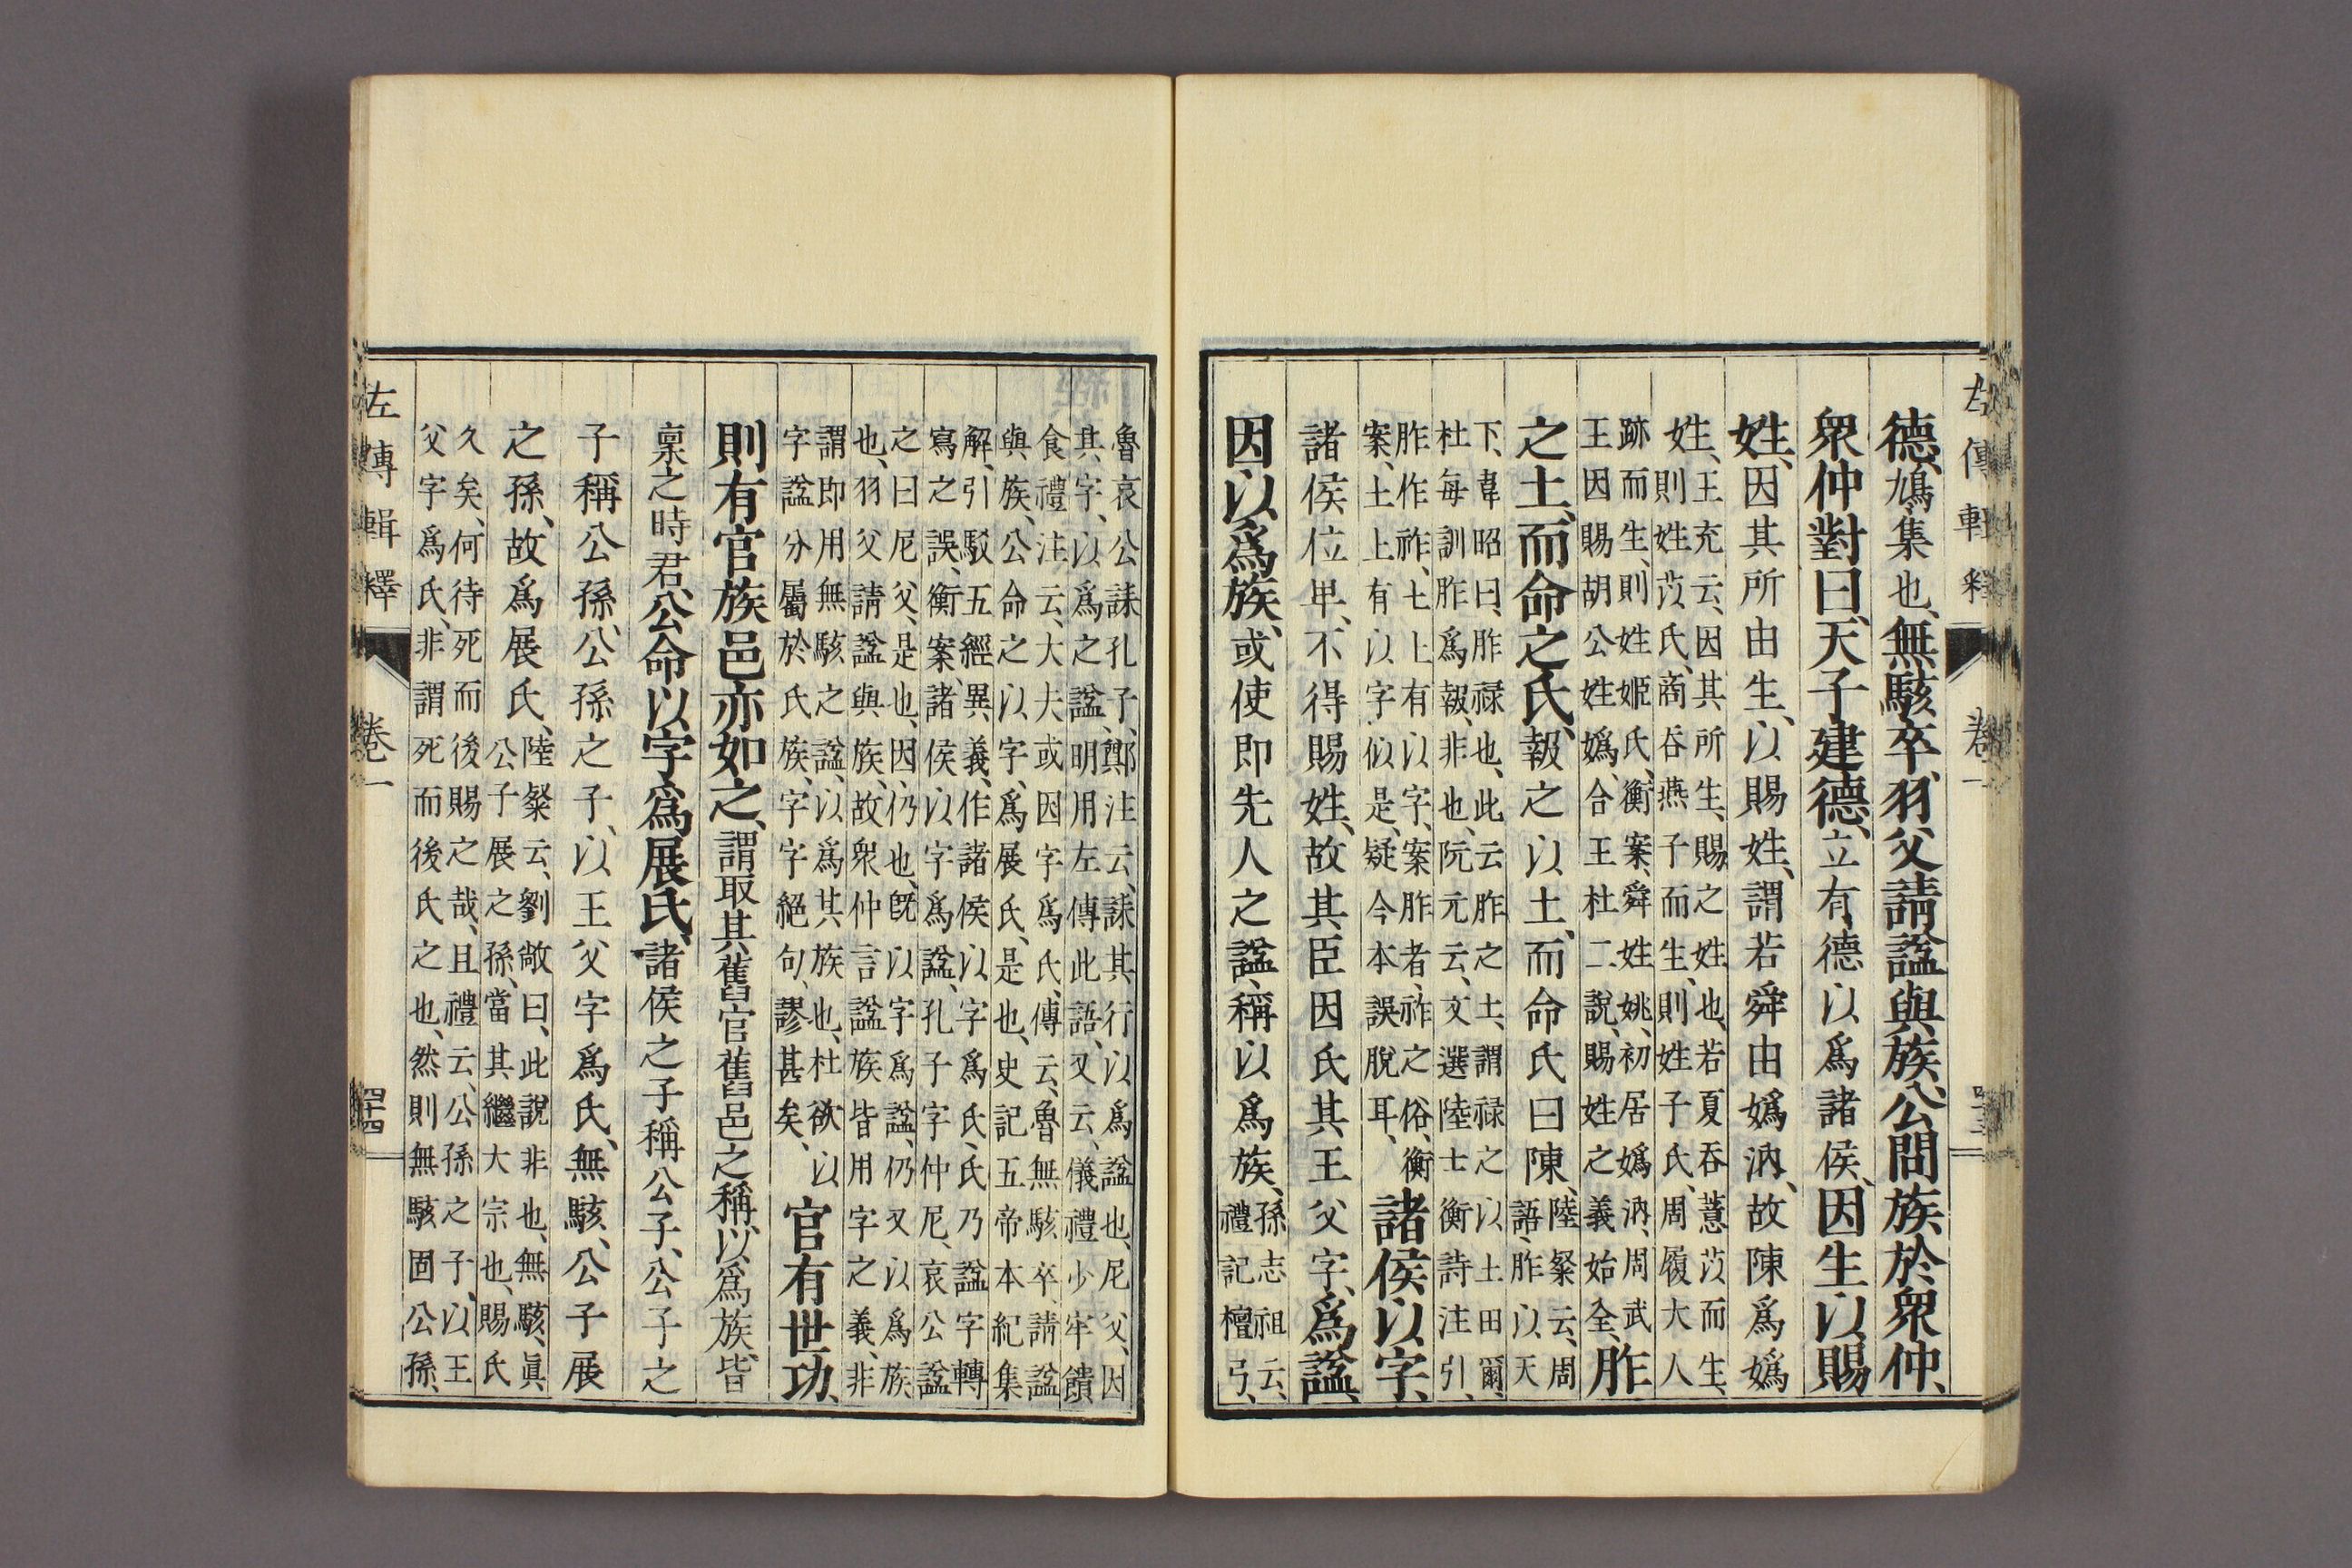 左傳輯釋 卷一
德、鳩集也、無駭卒、羽父請謚與族、公問族於衆仲、
衆仲對曰、天子建德、立有德以爲諸侯、因生以賜
姓、因其所由生、以賜姓、謂若舜由嬀汭、故陳爲嬀
姓、王充云、因其所生、賜之姓也、若夏吞薏苡而生、
則姓苡氏、商吞燕子而生、則姓子氏、周履大人
跡而生、則姓姬氏、衡案、舜姓姚、初居嬀汭、周武
王因賜胡公姓嬀、合王杜二說、賜姓之義始全、胙
之土、而命之氏、報之以土、而命氏曰陳、陸粲云、周
語、胙以天
下、韋昭曰、胙祿也、此云胙之土、謂祿之以土田爾、
杜每訓胙爲報、非也、阮元云、文選陸士衡詩注引、
胙作祚、土上有以字、案胙者、祚之俗、衡
案、土上有以字似是、疑今本誤脫耳、諸侯以字、
諸侯位卑、不得賜姓、故其臣因氏其王父字、爲謚、
因以爲族、或使即先人之謚、稱以爲族、孫志祖云、
禮記檀弓、
魯哀公誄孔子、鄭注云、誄其行以爲謚也、尼父、因
其字、以爲之謚、明用左傳此語、又云、儀禮少牢饋
食禮注云、大夫或因字爲氏、傳云、魯無駭卒、請謚
與族、公命之以字、爲展氏、是也、史記五帝本紀集
解、引駁五經異義、作諸侯以字爲氏、氏乃謚字轉
寫之誤、衡案、諸侯以字爲謚、孔子字仲尼、哀公謚
之曰尼父、是也、因仍也、旣以字爲謚、仍又以爲族
也、羽父請謚與族、故衆仲言謚族皆用字之義、非
謂即用無駭之謚、以爲其族也、杜欲以
字謚分屬於氏族、字字絕句、謬甚矣、官有世功、
則有官族、邑亦如之、謂取其舊官舊邑之稱、以爲族、皆
稟之時君、公命以字爲展氏、諸侯之子稱公子、公子之
子稱公孫、公孫之子、以王父字爲氏、無駭、公子展
之孫、故爲展氏、陸粲云、劉敞曰、此說非也、無駭、眞
公子展之孫、當其繼大宗也、賜氏
久矣、何待死而後賜之哉、且禮云、公孫之子、以王
父字爲氏、非謂死而後氏之也、然則無駭固公孫、
左傳輯釋 卷一 四十四